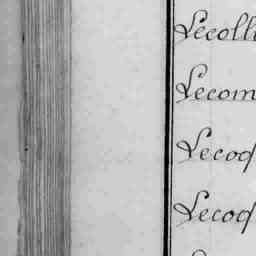 Lecoll
Lecom
Lecoq
Lecoq